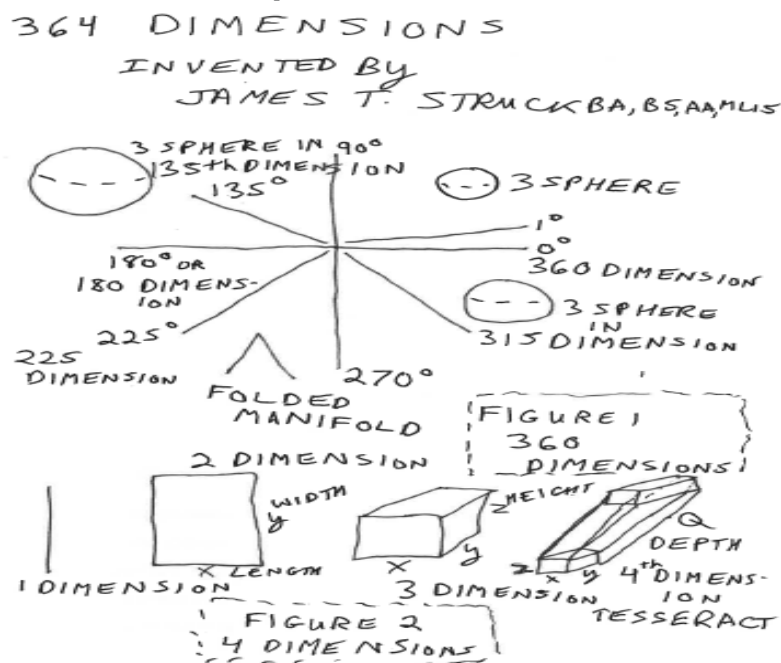 364 DIMENSIONS
INVENTED By
JAMES T. STRUCK BA, BS, AA, MLIS
3 SPHERE IN 90°
135th DIMENSION
135°
3 SPHERE
1°
0°
360 DIMENSION
180° OR
180 DIMENS-
ION
3 SPHERE
IN
315 DIMENSION
225°
225
DIMENSION
270°
FOLDED
MANIFOLD
FIGURE 1
360
DIMENSIONS
2 DIMENSION
WIDTH
y
X LENGTH
1 DIMENSION
HEIGHT
Z
X
y
3 DIMENSION
Q
DEPTH
Z
X
y
4th DIMENS-
ION
TESSERACT
FIGURE 2
4 DIMENSIONS